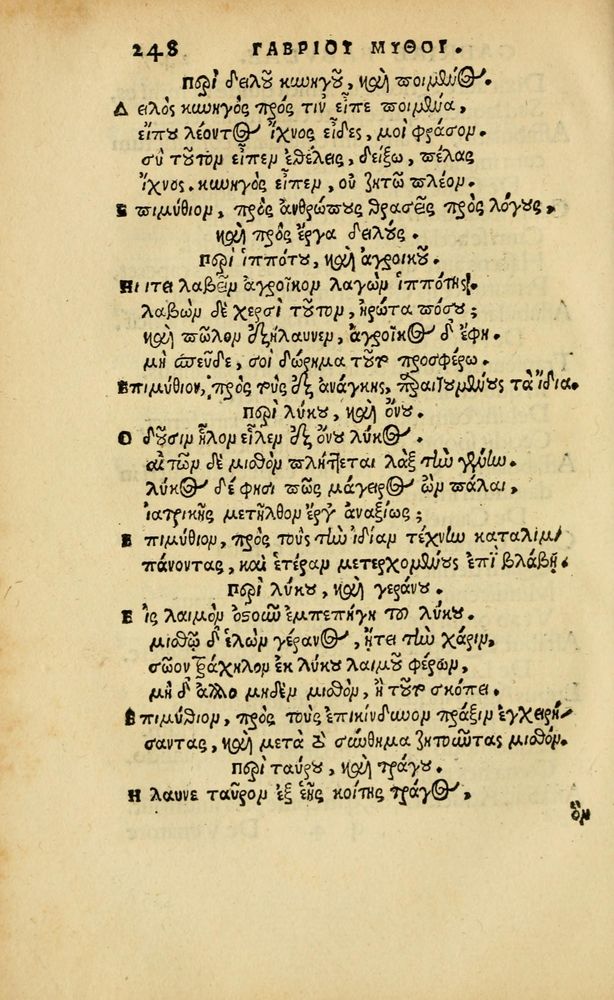 248 ΓΑΒΡΙΟΥ ΜΥΘΟΙ.
περὶ δειλοῦ κυνηγοῦ, καὶ ποιμένος.
Δειλὸς κυνηγὸς πρός τιν' εἶπε ποιμένα,
εἴπου λέοντος ἴχνος εἶδες, μοὶ φράσον.
σὺ τοῦτον εἶπεν ἐθέλεις, δείξω, πέλας
ἴχνος. κυνηγὸς εἶπεν, οὐ ζητῶ πλέον.
Επιμύθιον, πρὸς ἀνθρώπους θρασεῖς πρὸς λόγους,
καὶ πρὸς ἔργα δειλούς.
περὶ ἱππότου, καὶ ἀγροίκου.
Ηιτει λαβεῖν ἀγροῖκον λαγὼν ἱππότης.
λαβὼν δὲ χερσὶ τοῦτον, ἠρώτα πόσου;
καὶ πῶλον ἐξήλαυνεν, ἀγροῖκος δ' ἔφη.
μὴ σπεῦδε, σοὶ δώρημα τοῦτο προσφέρω.
Επιμύθιον, πρὸς τοὺς ἐξ ἀνάγκης, παραιτουμένους τὰ ἴδια.
περὶ λύκου, καὶ ὄνου.
Οδοῦσιν ἧλον εἷλεν ἐξ ὄνου λύκος.
αἰτῶν δὲ μισθὸν πλήττεται λὰξ τὴν γένυν.
λύκος δέ φησι πῶς μάγειρος ὢν πάλαι,
ἰατρικῆς μετῆλθον ἔργ' ἀναξίως;
Επιμύθιον, πρὸς τοὺς τὴν ἰδίαν τέχνην καταλιμ-
πάνοντας, καὶ ἑτέραν μετερχομένους ἐπὶ βλάβῃ.
περὶ λύκου, καὶ γεράνου.
Εἰς λαιμὸν ὀστοῦν ἐμπεπήγη τῷ λύκου.
μισθῷ δ' ἑλὼν γέρανος, ᾔτει τὴν χάριν,
σῶον τράχηλον ἐκ λύκου λαιμοῦ φέρων,
μὴ δ' ἄλλο μηδὲν μισθὸν, ἢ τοῦτο σκόπει.
Επιμύθιον, πρὸς τοὺς ἐπικίνδυνον πρᾶξιν ἐγχειρή-
σαντας, καὶ μετὰ τὸ σώθημα ζητοῦντας μισθόν.
περὶ ταύρου, καὶ τράγου.
Ηλαυνε ταῦρον ἐξ ἑῆς κοίτης τράγος,
ὃν